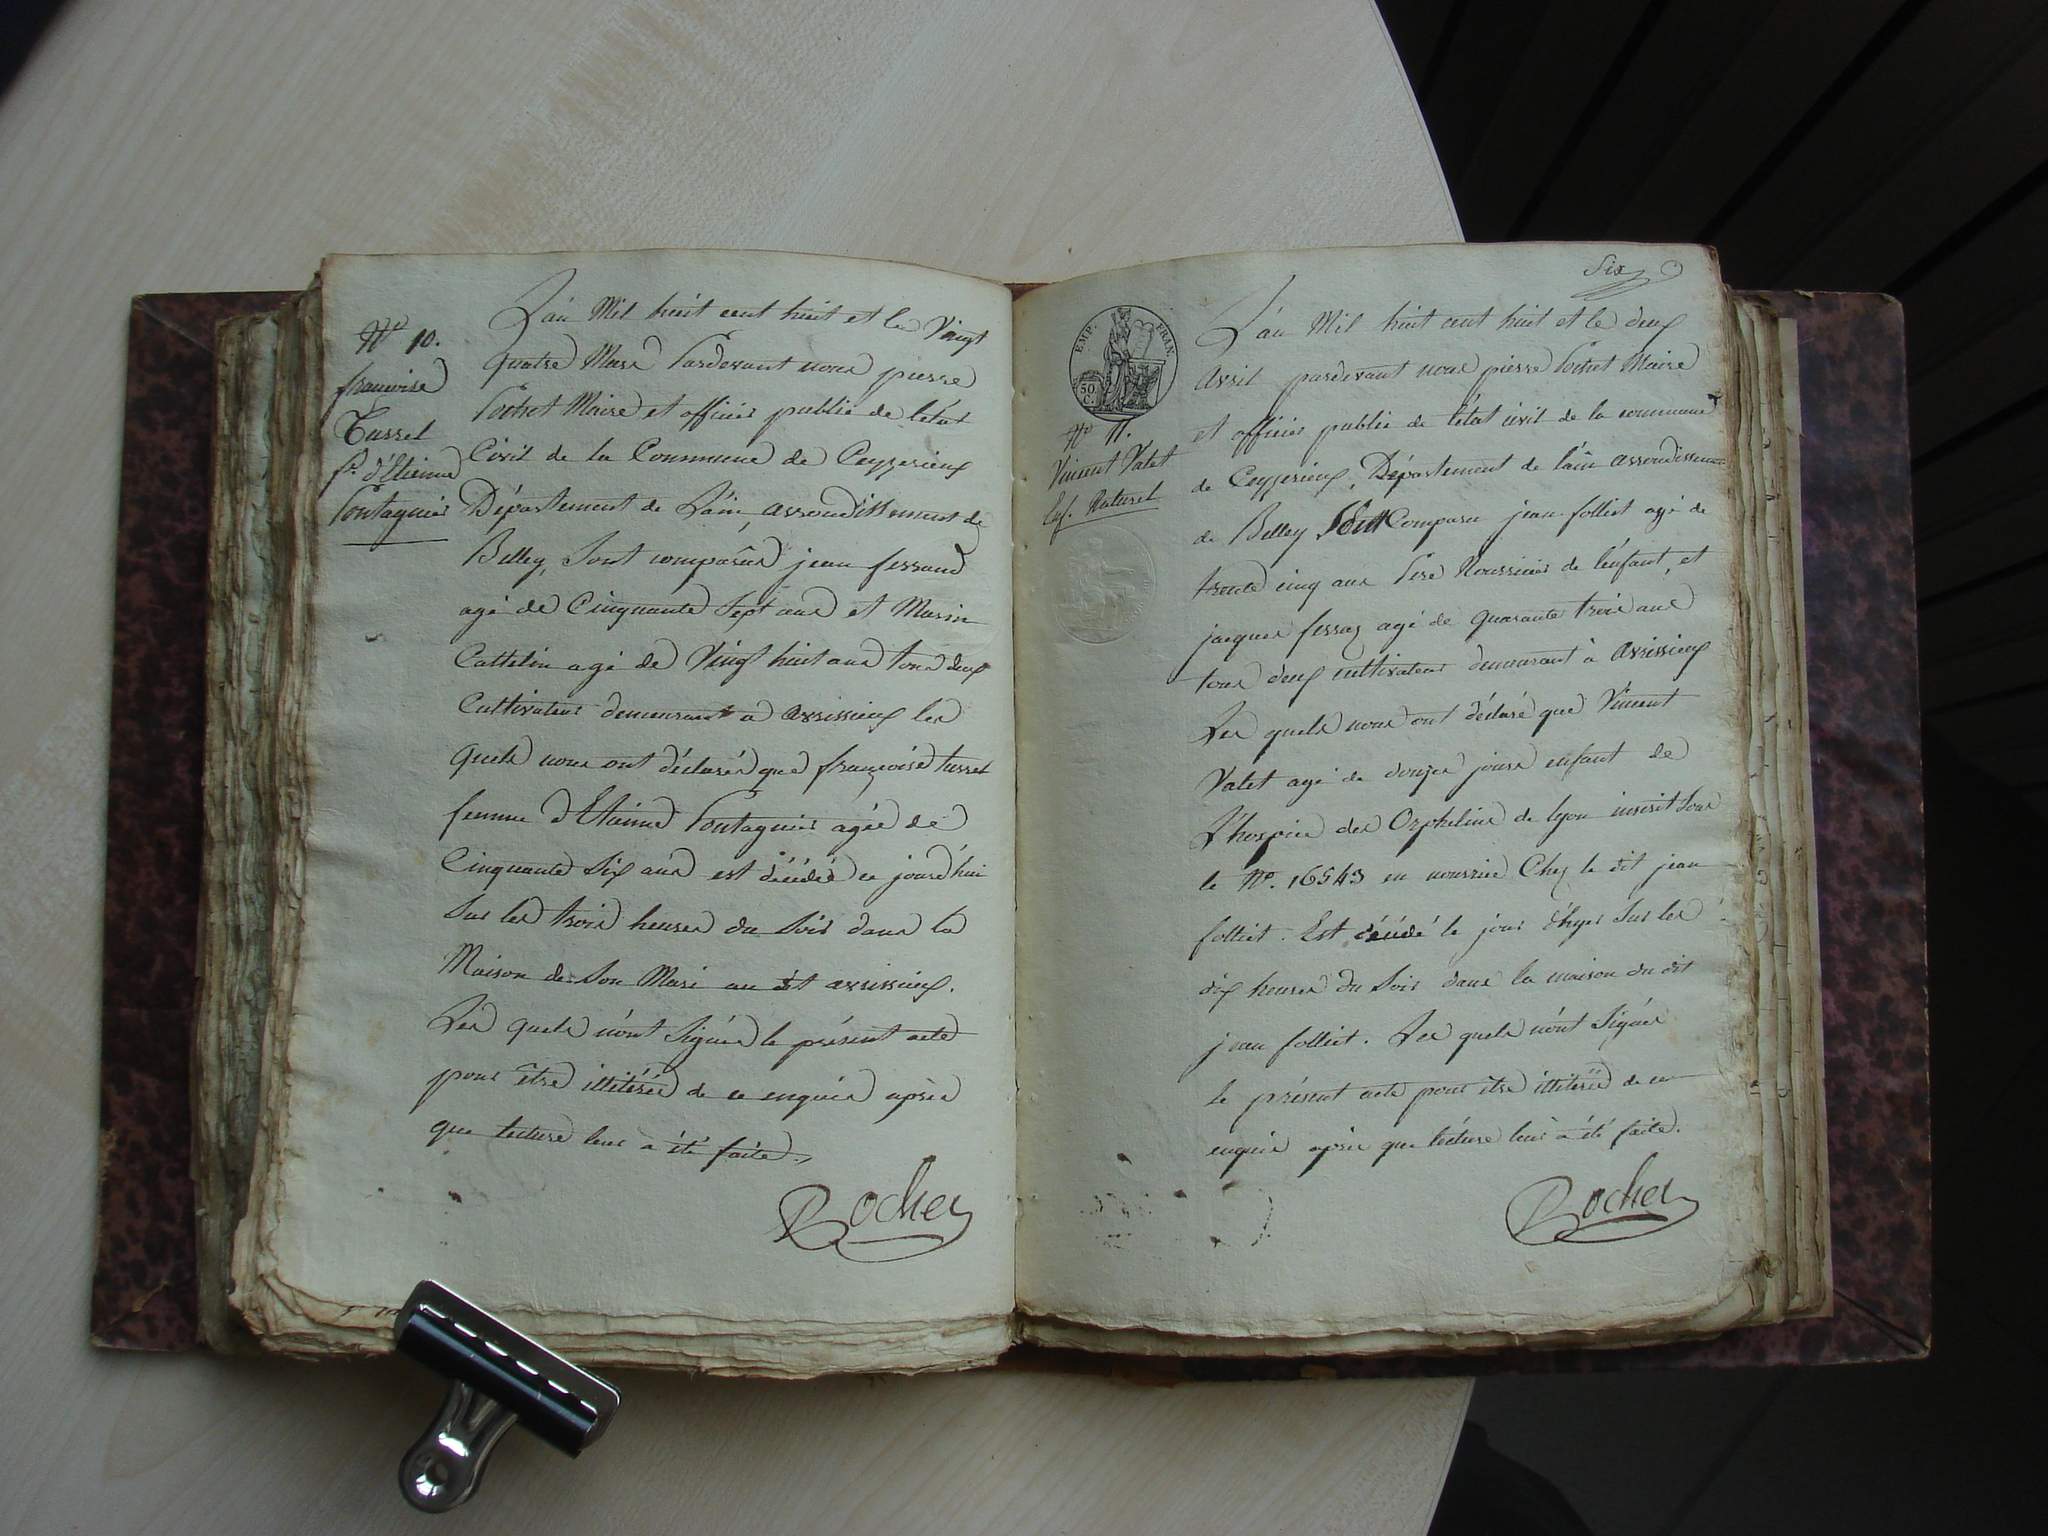 N.º 10.
françoise
Turrel
f.e d'Etienne
Pontagnier
L'an Mil huit cent huit et le Vingt
quatre Mars Pardevant nous pierre
Pochet Maire et officier public de l'état
Civil de la Commune de Ceyzerieux
Département de L'ain, arrondissement de
Belley, Sont comparus jean ferrand
agé de Cinquante Sept ans et Marin
Cattelin agé de Vingt huit ans tous deux
Cultivateurs demeurant a avrissieux les
quels nous ont déclarés que françoise turrel
femme d'Etienne Pontagnier agée de
Cinquante Six ans est décédée ce jourd'hui
Sur les trois heures du Soir dans la
Maison de Son Mari au dit avrissieux.
Les quels n'ont Signés le présent acte
pour être illitérés de ce enquis après
que lecture leur a été faite.
Six
EMP. FRAN.
50 C.
N.º 11.
Vincent Valet
Enf. Naturel
L'an Mil huit cent huit et le deux
Avril pardevant nous pierre Pochet Maire
et officier public de l'état civil de la commune
de Ceyzerieux, Département de l'ain arrondissement
de Belley Sont Comparu jean folliet agé de
trente cinq ans Pere Nourricier de l'enfant, et
jacques ferraz agé de quarante trois ans
tous deux cultivateurs demeurant à avrissieux
Les quels nous ont déclaré que Vincent
Valet agé de douze jours enfant de
L'hospice des Orphelins de lyon inscrit Sous
le N.º 16543 en nourrice Chez le dit jean
folliet. Est décédé le jour d'hyer Sur les
dix heures du Soir dans la maison du dit
jean folliet. Les quels n'ont Signés
le présent acte pour être illitérés de ce
enquis après que lecture leur a été faite.